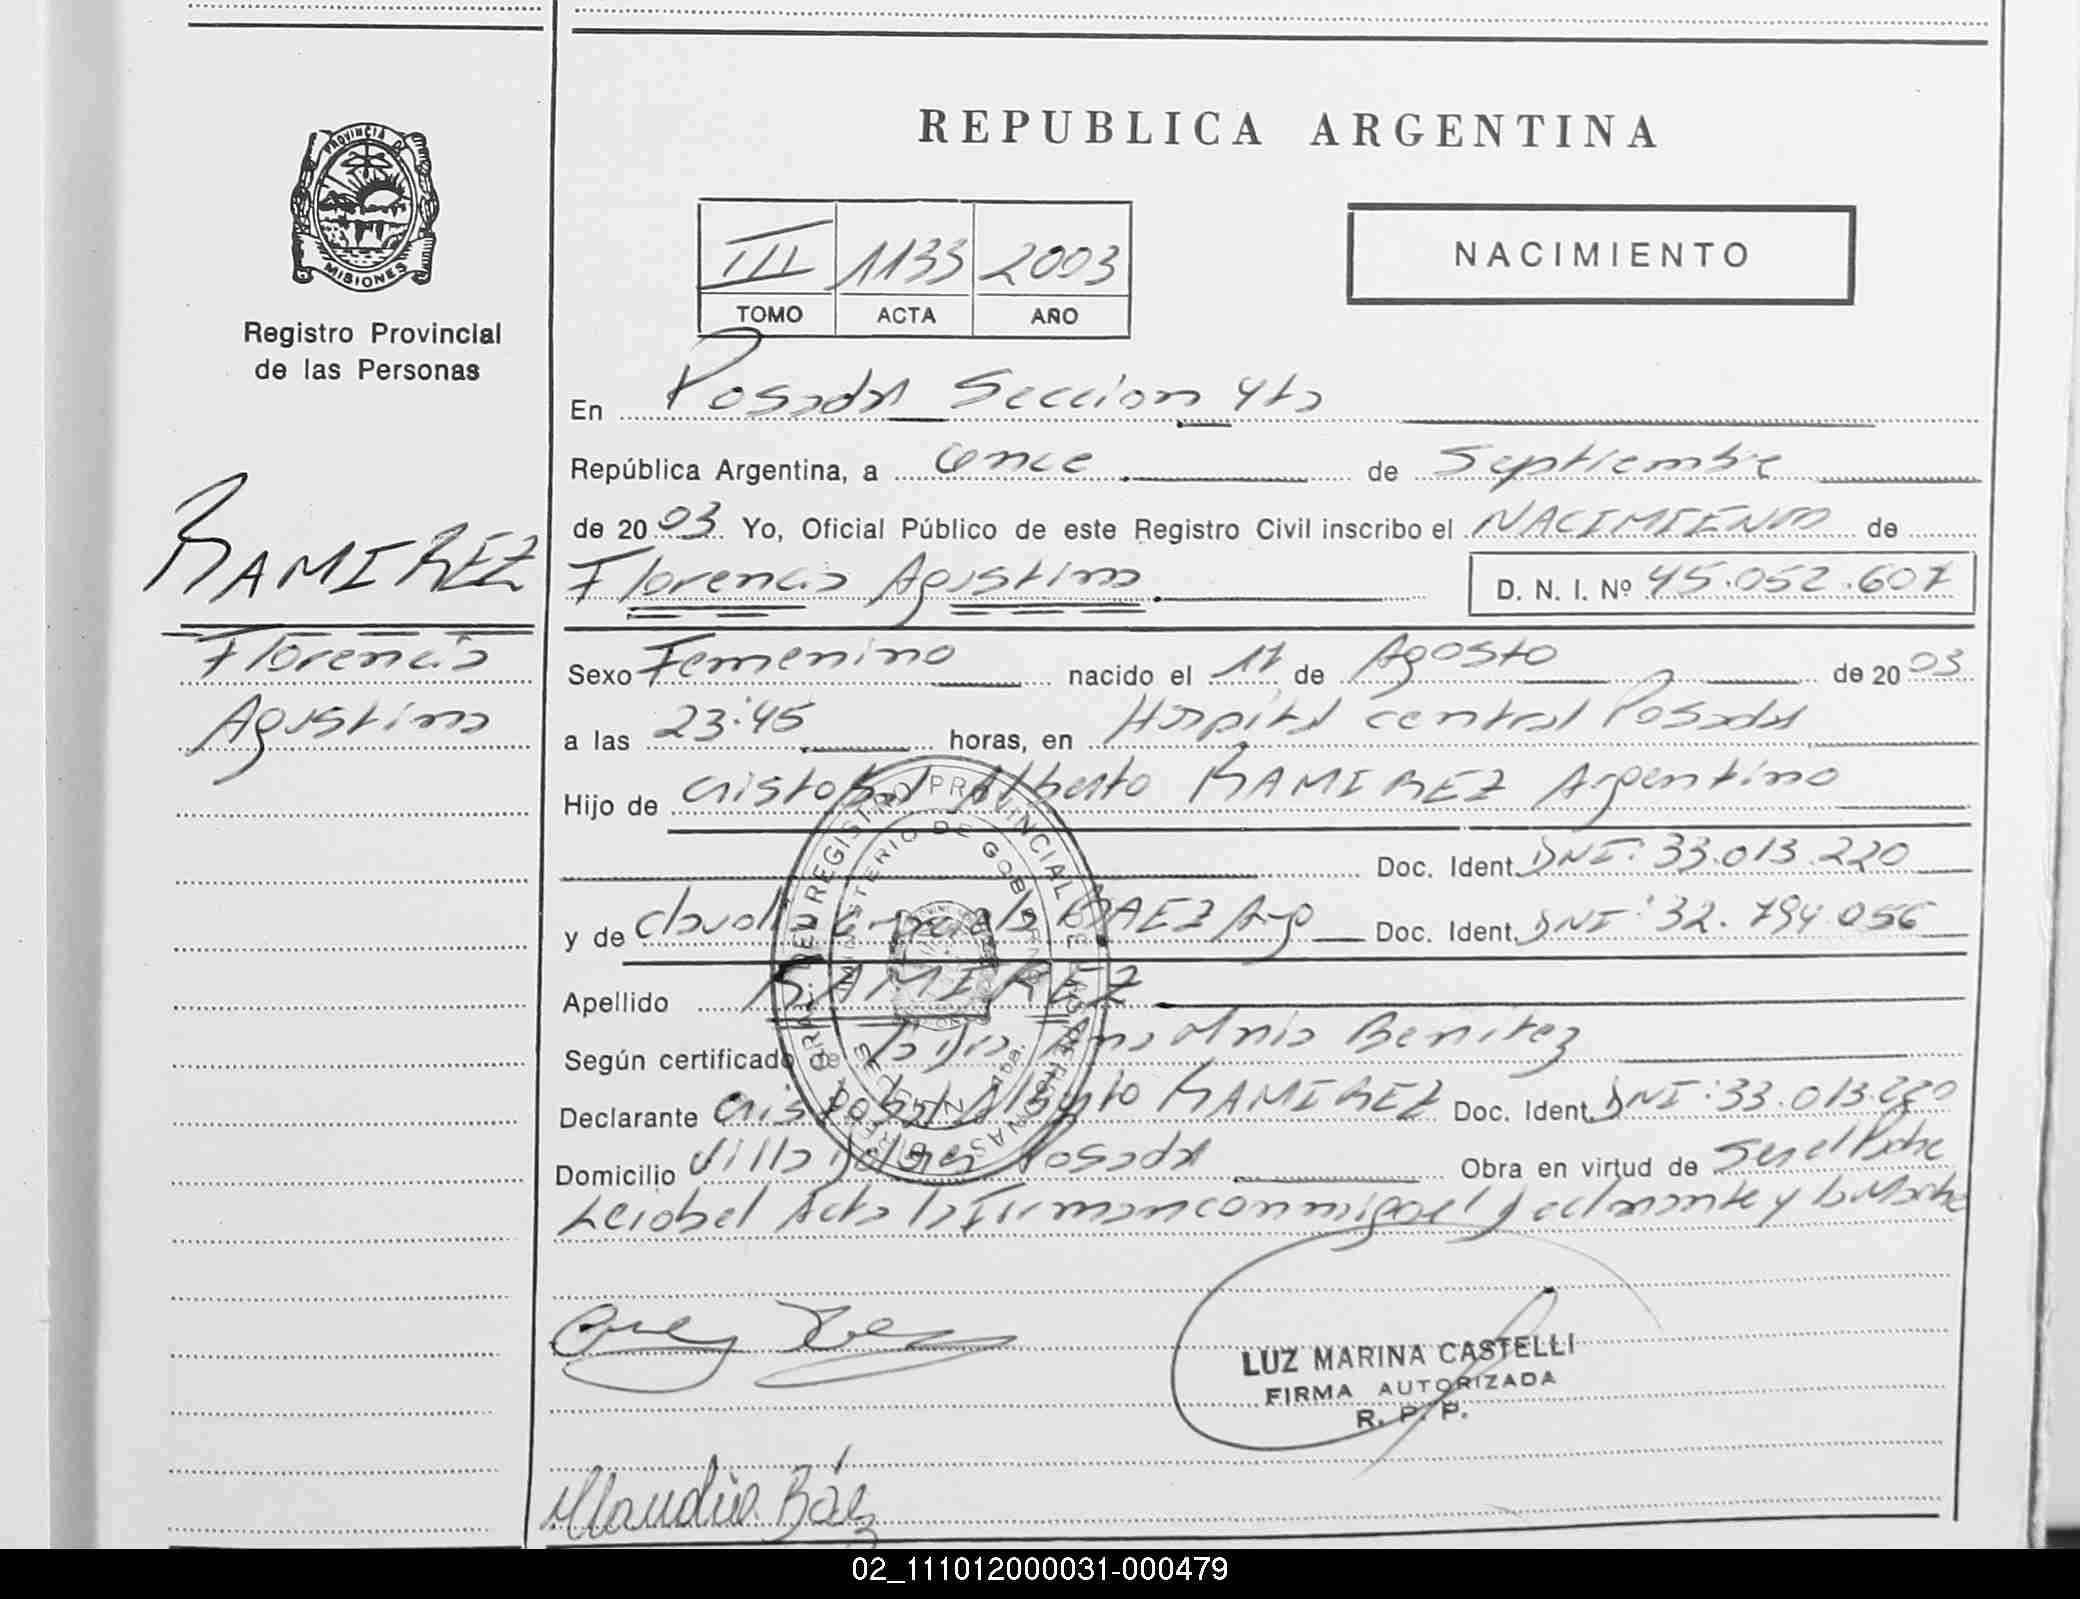 REPUBLICA ARGENTINA
PROVINCIA DE
MISIONES
Registro Provincial
de las Personas
III 1133 2003
TOMO ACTA AÑO
NACIMIENTO
En Posadas Seccion 4ta
República Argentina, a once de Septiembre
de 2003 Yo, Oficial Público de este Registro Civil inscribo el NACIMIENTO de
Florencia Agustina D. N. I. Nº 45.052.607
RAMIREZ
Florencia
Agustina
Sexo Femenino nacido el 17 de Agosto de 2003
a las 23:45 horas, en Hospital central Posadas
Hijo de Cristobal Alberto RAMIREZ Argentino
Doc. Ident. DNI: 33.013.220
y de Claudia BAEZ Arg Doc. Ident. DNI: 32.794.056
Apellido RAMIREZ
Según certificado de la Dra Ana Maria Benitez
Declarante Cristobal Alberto RAMIREZ Doc. Ident. DNI: 33.013.220
Domicilio Villa Posadas Obra en virtud de Ser el Padre
Leida el Acta la Firman conmigo el declarante y la Madre
LUZ MARINA CASTELLI
FIRMA AUTORIZADA
R. P. P.
Claudia Báez
02_111012000031-000479